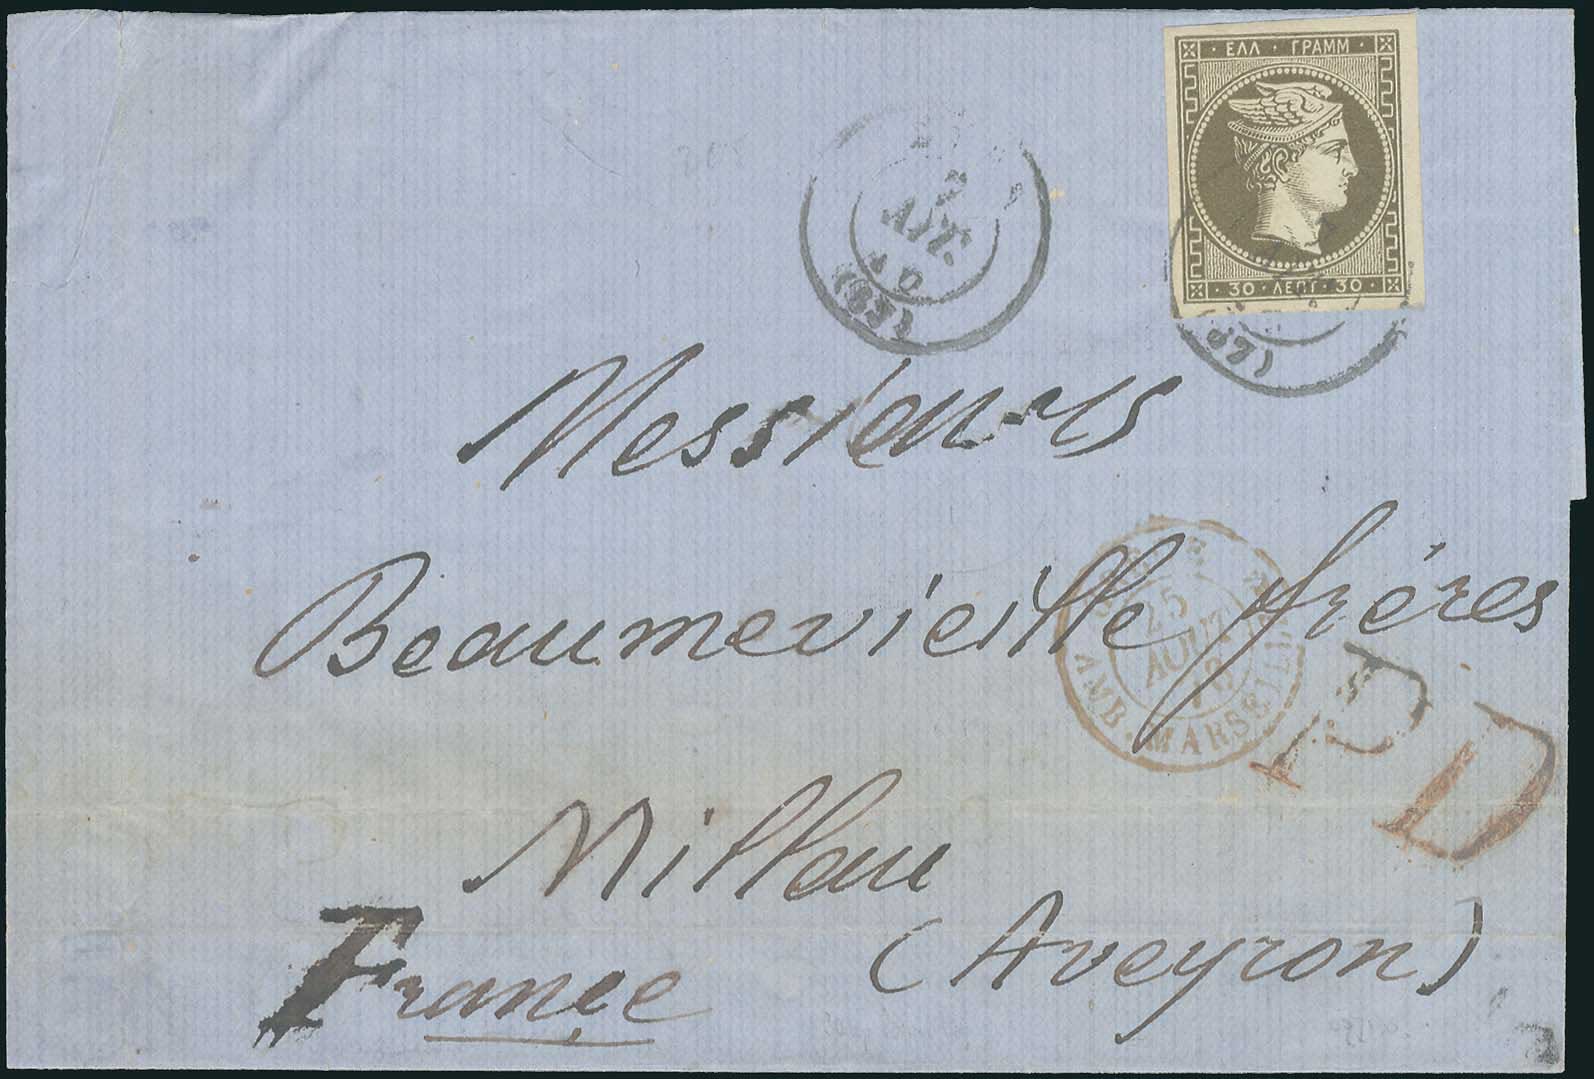 ΕΛΛ · ΓΡΑΜΜ
30 · ΛΕΠΤ · 30
ΑΥΓ.
(67)
Messieurs
Beaumevieille frères
25
AOUT
AMB. MARSEILLE
PD
Millau
(Aveyron)
France